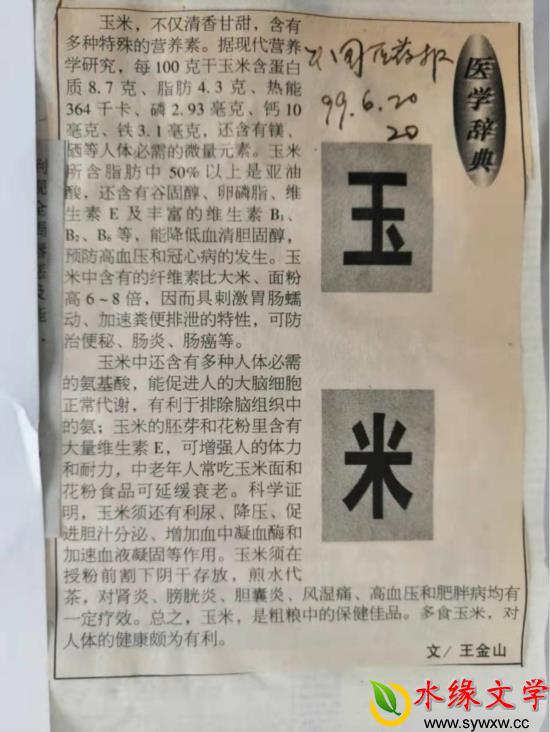 玉米，不仅清香甘甜，含有
多种特殊的营养素。据现代营养
学研究，每100克干玉米含蛋白
质8.7克、脂肪4.3克、热能
364千卡、磷2.93毫克、钙10
毫克、铁3.1毫克，还含有镁、
硒等人体必需的微量元素。玉米
所含脂肪中50%以上是亚油
酸，还含有谷固醇、卵磷脂、维
生素E及丰富的维生素B₁、
B₂、B₆等，能降低血清胆固醇，
预防高血压和冠心病的发生。玉
米中含有的纤维素比大米、面粉
高6~8倍，因而具刺激胃肠蠕
动、加速粪便排泄的特性，可防
治便秘、肠炎、肠癌等。
玉米中还含有多种人体必需
的氨基酸，能促进人的大脑细胞
正常代谢，有利于排除脑组织中
的氨；玉米的胚芽和花粉里含有
大量维生素E，可增强人的体力
和耐力，中老年人常吃玉米面和
花粉食品可延缓衰老。科学证
明，玉米须还有利尿、降压、促
进胆汁分泌、增加血中凝血酶和
加速血液凝固等作用。玉米须在
授粉前割下阴干存放，煎水代
茶，对肾炎、膀胱炎、胆囊炎、风湿痛、高血压和肥胖病均有
一定疗效。总之，玉米，是粗粮中的保健佳品。多食玉米，对
人体的健康颇为有利。
文/王金山
医学辞典
玉
米
医药报
99.6.20
20
水缘文学
www.sywxw.com